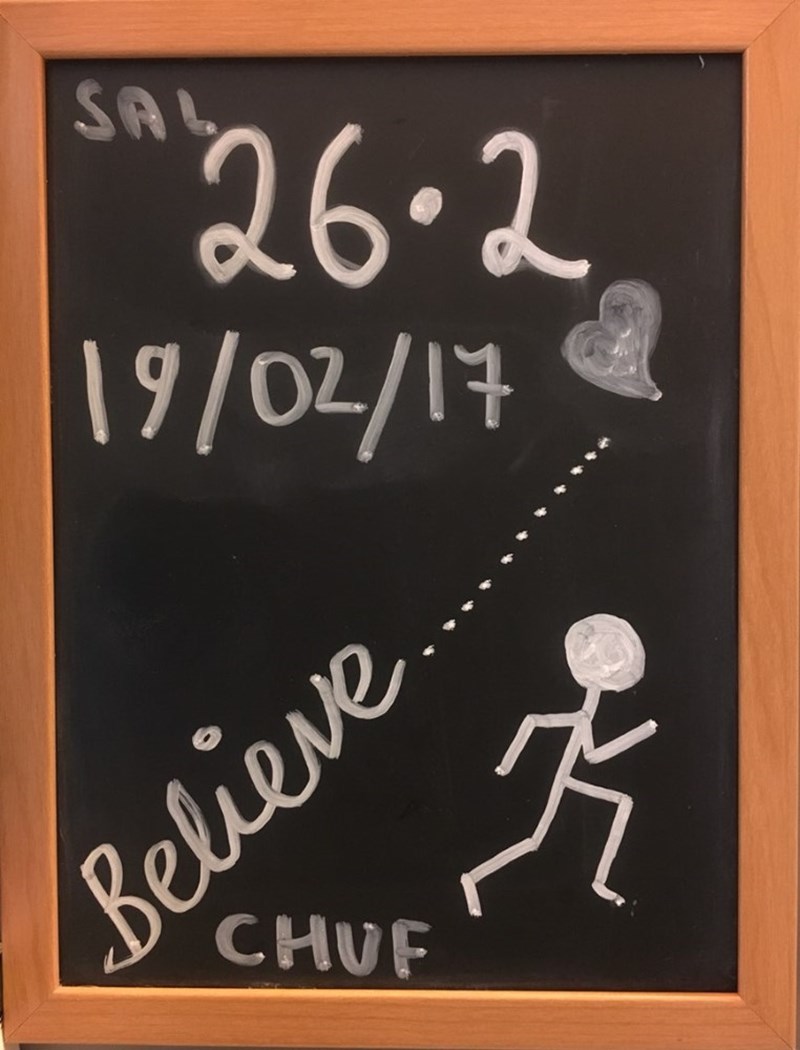 SAL
26.2
19/02/17
Believe
CHUF